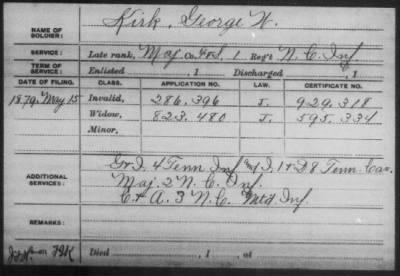 NAME OF SOLDIER: Kirk, George W.
SERVICE: Late rank, Maj Co. F&S, 1 Reg't N.C. Inf
TERM OF SERVICE: Enlisted , 1 Discharged , 1
DATE OF FILING. CLASS. APPLICATION NO. LAW. CERTIFICATE NO.
1879, May 15 Invalid, 286.396 J. 929.318
Widow, 823.480 J. 595.334
Minor,
ADDITIONAL SERVICES: 4 Tenn Inf I, 1 & D 8 Tenn. Cav.
Maj. 2 N.C. Inf.
C & A. 3 N.C. Mtd Inf
REMARKS:
Died , 1 , at